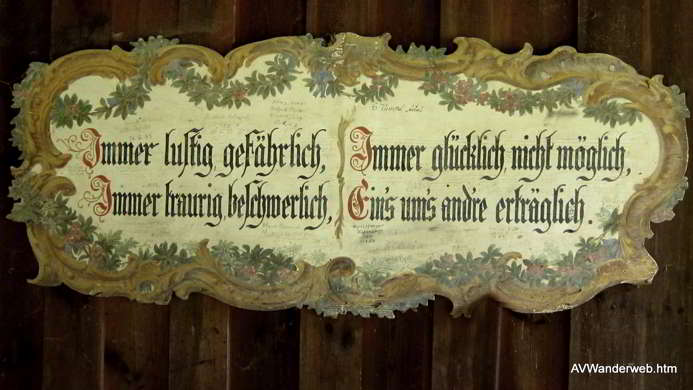 Immer lustig, gefährlich,
Immer traurig, beschwerlich,
Immer glücklich, nicht möglich,
Ein's um's andre erträglich.
AVWanderweb.htm